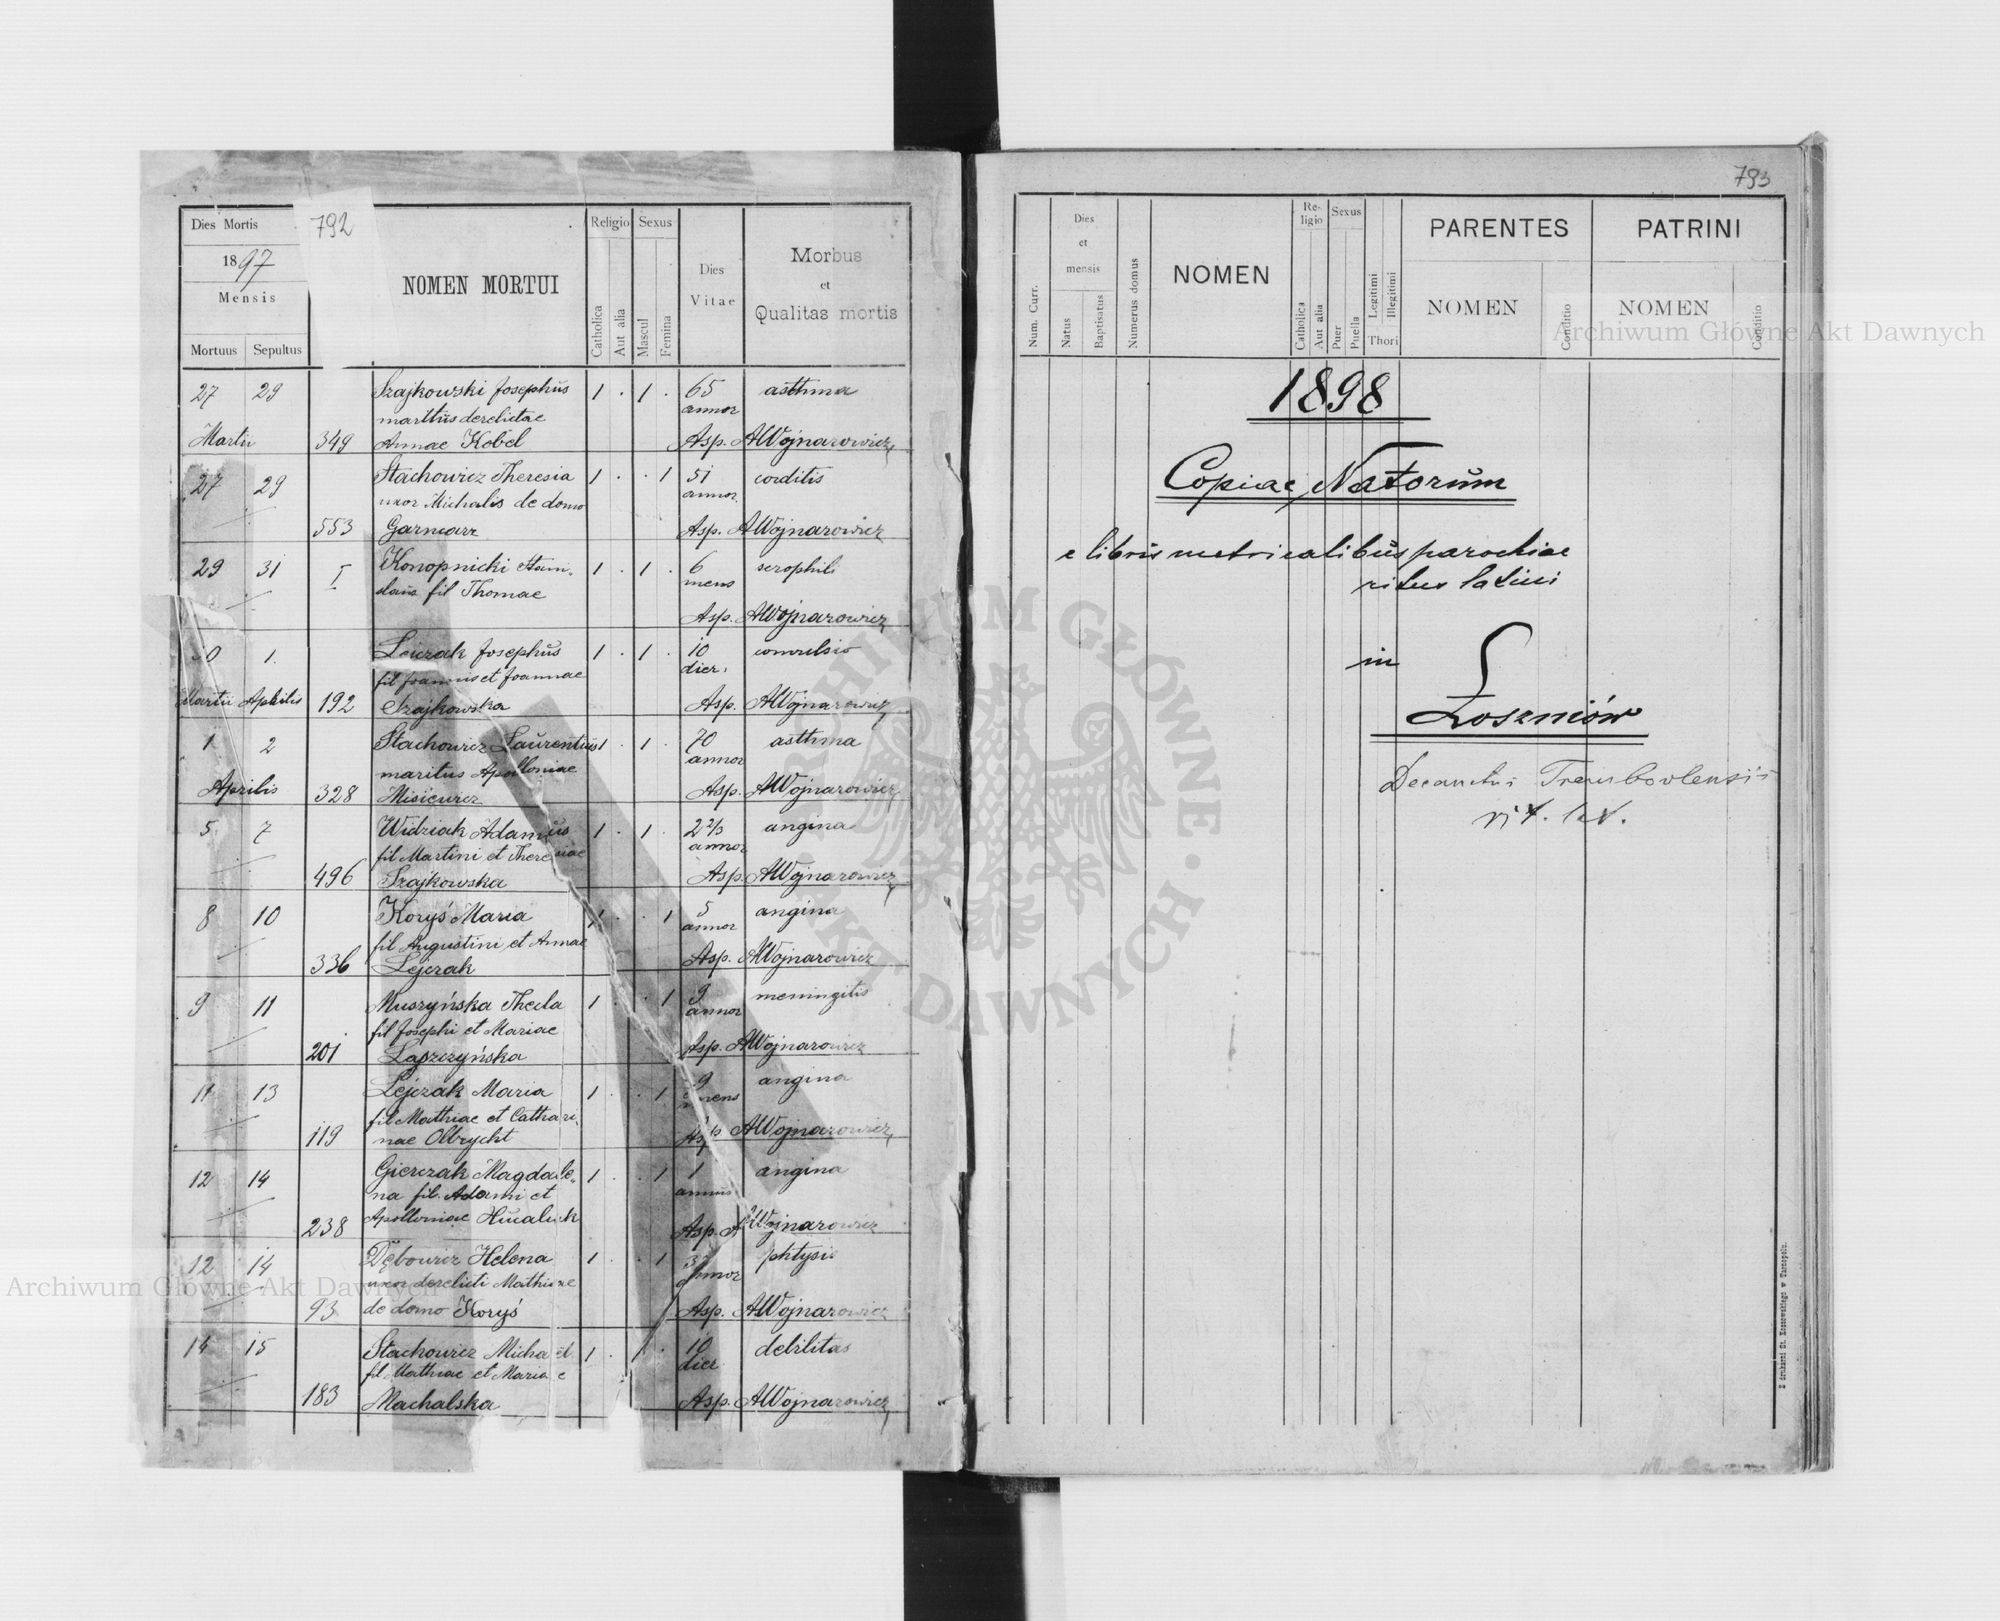 792
Dies Mortis
1897
Mensis
Mortuus Sepultus
NOMEN MORTUI
Religio
Catholica
Aut alia
Sexus
Mascul
Femina
Dies
Vitae
Morbus
et
Qualitas mortis
27 29 Szajkowski Josephus 1 . 1 . 65 asthma
maritus derelictae annor
Martii 349 Annae Kobel Asp. AWojnarowicz
27 29 Stachowicz Theresia 1 . . 1 51 corditis
uxor Michalis de domo annor
553 Garncarz Asp. AWojnarowicz
29 31 I Konopnicki Stanis 1 . 1 . 6 scrophili
laus fil Thomae mens
Asp. AWojnarowicz
1. Lejczak Josephus 1 . 1 . 10 convulsio
fil Joannis et Joannae dier.
Martii Aprilis 192 Szajkowska Asp. AWojnarowicz
1 2 Stachowicz Laurentius 1 . 1 . 70 asthma
maritus Apolloniae annor
Aprilis 328 Misiewicz Asp. AWojnarowicz
5 7 Widziak Adamus 1 . 1 . 2 2/3 angina
fil Martini et Theresiae annor
496 Szajkowska Asp. AWojnarowicz
8 10 Koryś Maria 1 . . 1 5 angina
fil Augustini et Annae annor
336 Lejczak Asp. AWojnarowicz
9 11 Muszyńska Thecla 1 . . 1 9 meningitis
fil Josephi et Mariae annor
201 Łaszczyńska Asp. AWojnarowicz
11 13 Lejczak Maria 1 . . 1 9 angina
fil Mathiae et Cathari- mens
119 nae Olbrycht Asp AWojnarowicz
12 14 Gierczak Magdale- 1 . . 1 1 angina
na fil. Adami et annus
238 Apolloniae Hucaluk Asp. AWojnarowicz
12 14 Dębowicz Helena 1 . . 1 phtysis
uxor derelicti Mathiae annor
93 de domo Koryś Asp. AWojnarowicz
14 15 Stachowicz Michaël 1 . 1 . 10 debilitas
fil Mathiae et Mariae dier
183 Machalska Asp. AWojnarowicz
793
Num. Curr.
Dies
et
mensis
Natus
Baptisatus
Numerus domus
NOMEN
Re-
ligio
Catholica
Aut alia
Sexus
Puer
Puella
Legitimi
Illegitimi
Thori
PARENTES
NOMEN
Conditio
PATRINI
NOMEN
Conditio
1898
Copiae Natorum
e libris metricalibus parochiae
ritus latini
in
Łoszniów
Decanatus Trembovlensis
rit. lat.
Z drukarni St. Kossowskiego w Tarnopolu.
Archiwum Główne Akt Dawnych
Archiwum Główne Akt Dawnych
ARCHIWUM GŁÓWNE · AKT DAWNYCH ·